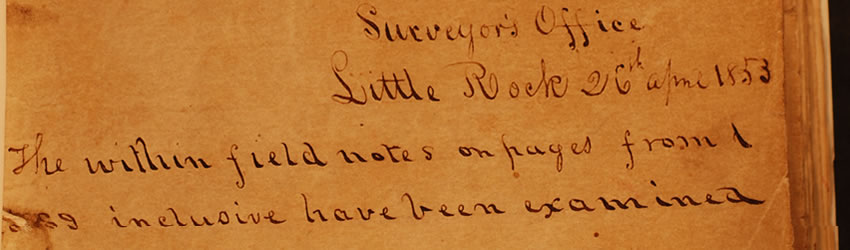 Surveyor's Office
Little Rock 26th April 1853
The within field notes on pages from 1
69 inclusive have been examined